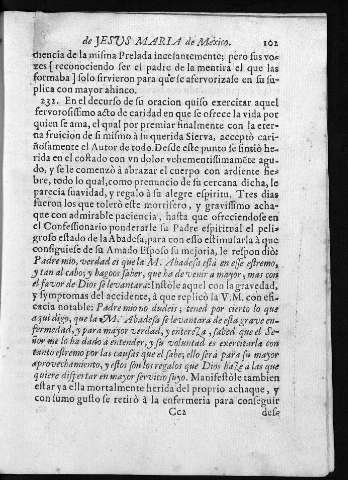 de JESVS MARIA de Mexico. 102
diencia de la misma Prelada incesantemente; pero sus vo-
zes (reconociendo ser el padre de la mentira el que las
formaba) solo sirvieron para que se afervorizase en su su-
plica con mayor ahinco.
232. En el decurso de su oracion quiso exercitar aquel
fervorosissimo acto de caridad en que se ofrece la vida por
quien se ama, el qual por premiar finalmente con la eter-
na fruicion de si mismo à su querida Sierva, acceptò cari-
ñosamente el Autor de todo. Desde este punto se sintiò he-
rida en el costado con vn dolor vehementissimamẽte agu-
do, y se le comenzò à abrazar el cuerpo con ardiente fie-
bre, todo lo qual, como prenuncio de su cercana dicha, le
parecia suavidad, y regalo à su alegre espiritu. Tres dias
fueron los que tolerò este mortifero, y gravissimo acha-
que con admirable paciencia, hasta que ofreciendose en
el Confessionario ponderarle su Padre espiritual el peli-
groso estado de la Abadesa, para con esso estimularla à que
consiguiese de su Amado Esposo su mejoria, le respondiò:
Padre mio, verdad es que la M. Abadesa està en esse estremo,
y tan al cabo; y hagoos saber, que ha de venir a mayor, mas con
el favor de Dios se levantarà: Instòle aquel con la gravedad,
y symptomas del accidente, à que replicò la V.M. con efi-
cacia notable: Padre mio no dudeis; tened por cierto lo que
aqui digo, que la M. Abadesa se levantarà de esta grave en-
fermedad, y para mayor verdad, y entereza, sabed que el Se-
ñor me lo ha dado à entender, y su voluntad es exercitarla con
tanto estremo por las causas que el sabe; ello serà para su mayor
aprovechamiento, y estos son los regalos que Dios haze a las que
quiere dispertar en mayor servicio suyo. Manifestòle tambien
estar ya ella mortalmente herida del proprio achaque, y
con sumo gusto se retirò à la enfermeria para conseguir
Cc2 dese